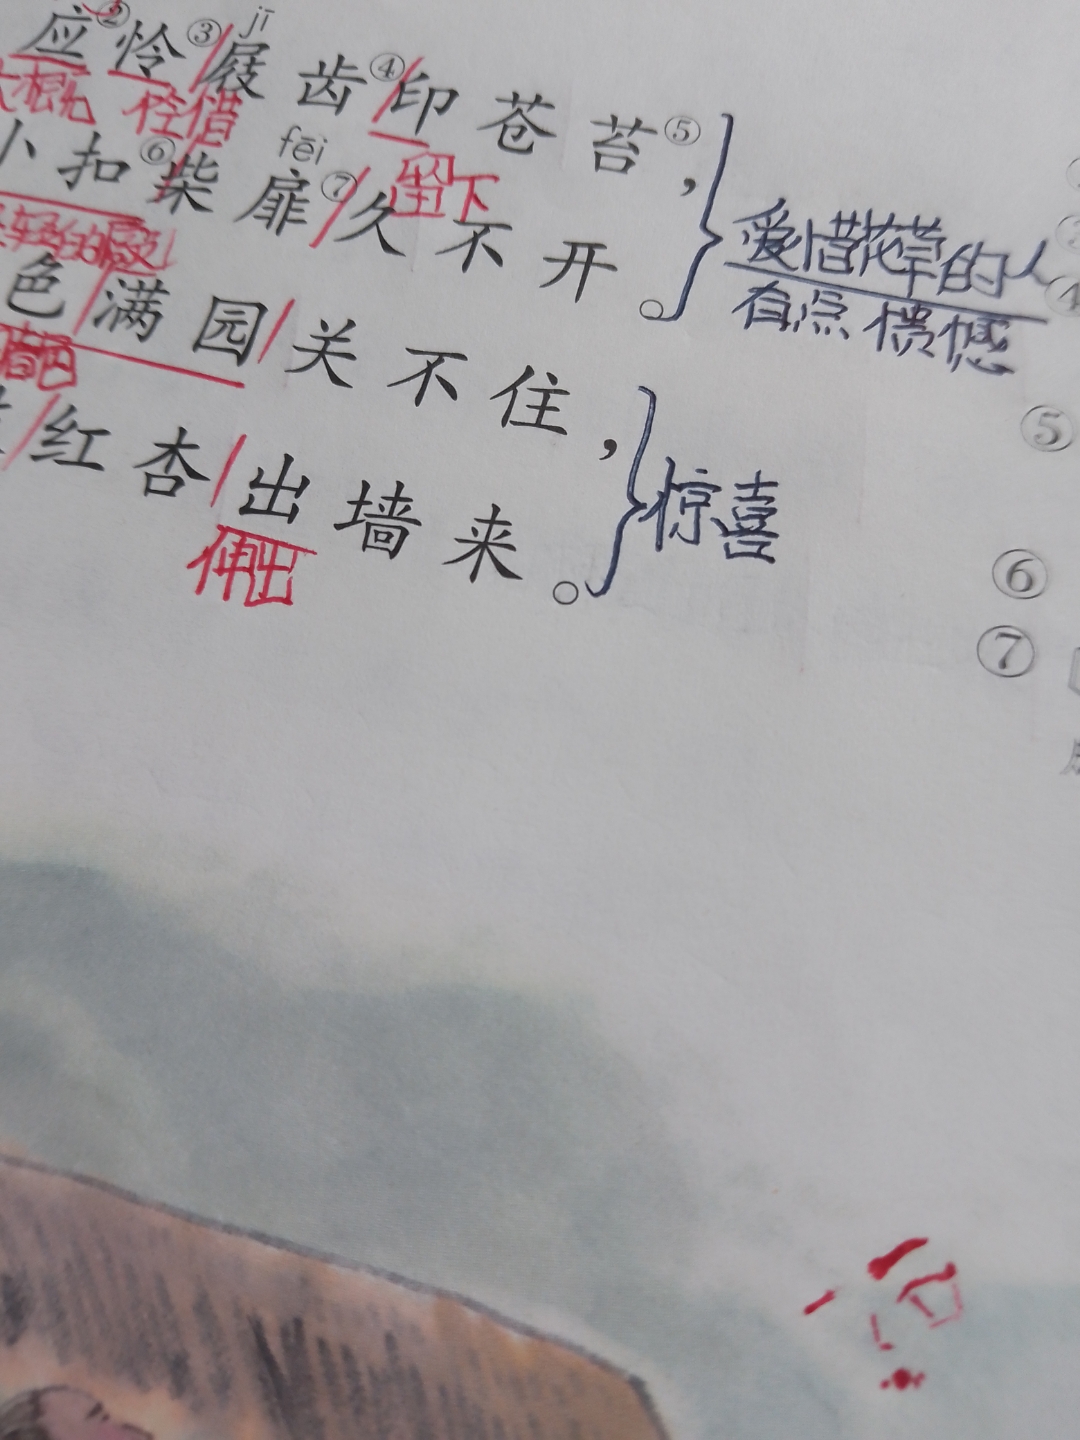 jī
应②怜③/屐齿④/印苍苔⑤，
大概 怜惜 留下
爱惜花草的人
有点 遗憾
fēi
小扣⑥柴扉⑦/久不开。
轻轻的敲
色/满园/关不住，
/红杏/出墙来。
惊喜
伸出
④
⑤
⑥
⑦